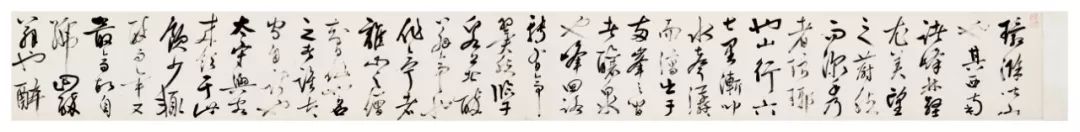 環滁皆山
也其西南
諸峰林壑
尤美望
之蔚然
而深秀
者琅琊
也山行六
七里漸聞
水聲潺
而瀉出于
兩峯之間
者釀泉
也峰回路
轉有亭
翼然臨于
泉上者醉
翁亭也
作亭者
誰山之僧
智僊也名
之者誰太
守自謂也
太守與客
來飲于此
飲少輒
醉而年又
最高故自
號曰醉
翁也醉